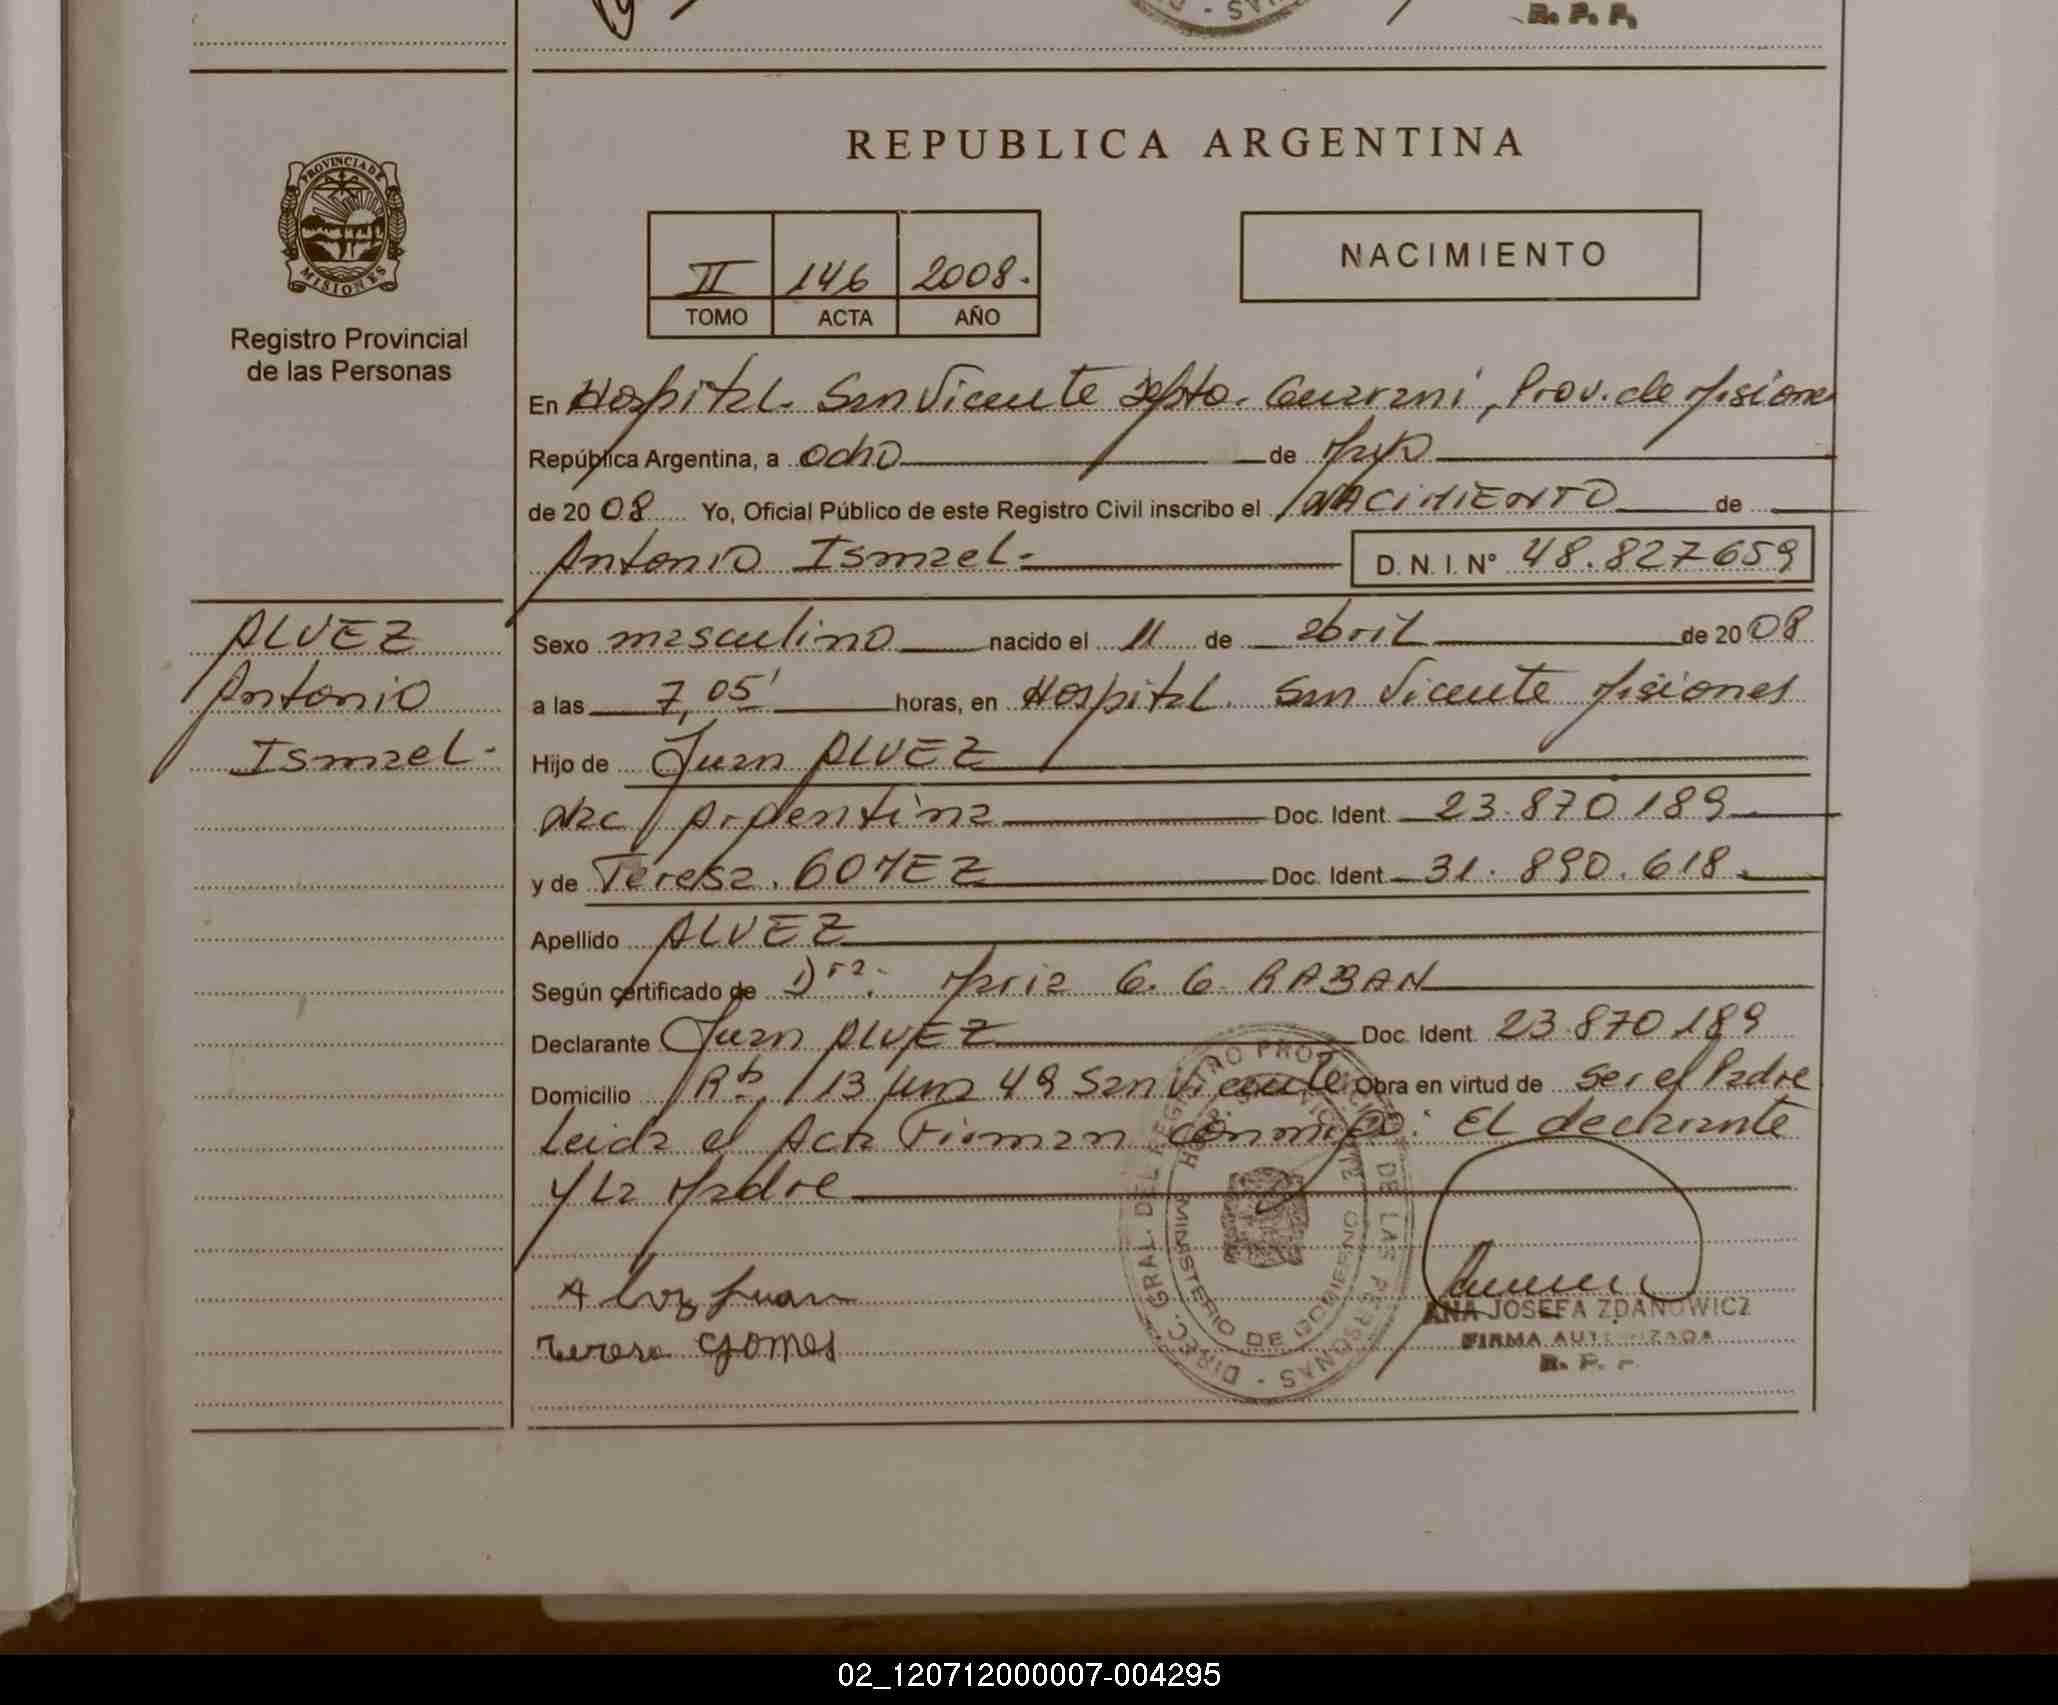 R. P. P.
PROVINCIA DE
MISIONES
Registro Provincial
de las Personas
REPUBLICA ARGENTINA
II 146 2008.
TOMO ACTA AÑO
NACIMIENTO
En Hospital. San Vicente Depto. Guarani, Prov. de Misiones
República Argentina, a ocho de Mayo
de 2008 Yo, Oficial Público de este Registro Civil inscribo el NACIMIENTO de
Antonio Ismael- D. N. I. Nº 48.827659
ALVEZ
Antonio
Ismael-
Sexo masculino nacido el 11 de abril de 2008
a las 7,05' horas, en Hospital. San Vicente Misiones
Hijo de Juan ALVEZ
Nac/ Argentina Doc. Ident. 23.870.189
y de Teresa. GOMEZ Doc. Ident. 31.890.618.
Apellido ALVEZ
Según certificado de Dra. Maria G. G. RABAN
Declarante Juan ALVEZ Doc. Ident. 23.870.189
Domicilio 13 49 San Vicente Obra en virtud de ser el Padre
Leida el Acta Firman conmigo: EL declarante
y La Madre
Alvz Juan
Teresa Gomes
DIREC. GRAL. DEL REGISTRO PROVINCIAL DE LAS PERSONAS -
HOSP. SAN VICENTE
MINISTERIO DE GOBIERNO
ANA JOSEFA ZDANOWICZ
FIRMA AUTORIZADA
R. P. P.
02_120712000007-004295